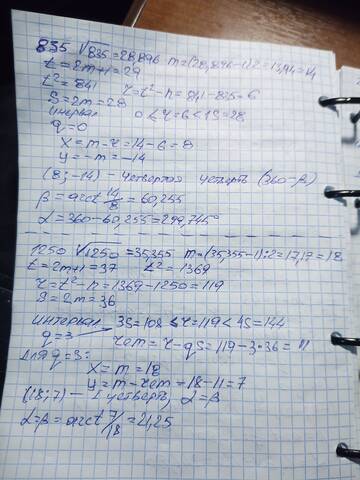 835 √835 = 28,896 m=(28,896-1):2=13,94=14
t=2m+1=29
t²=841 r=t²-n=841-835=6
S=2m=28
Интервал 0≤r=6<1S=28
q=0
x=m-r=14-6=8
y=-m=-14
(8;-14) - четвертая четверть (360-β)
β=arct 14/8=60,255
α=360-60,255=299,745°
1250 √1250=35,355 m=(35,355-1):2=17,17=18
t=2m+1=37 t²=1369
r=t²-n=1369-1250=119
S=2m=36
Интервал 3S=108≤r=119<4S=144
q=3 rem=r-qS=119-3·36=11
Для q=3:
x=m=18
y=m-rem=18-11=7
(18;7) - I четверть, α=β
α=β=arct 7/18=21,25